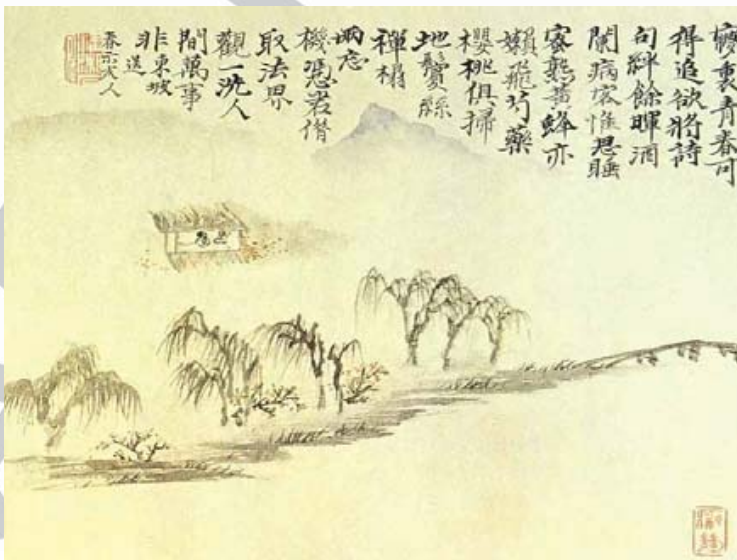 夢裏青春可
得追欲將詩
句絆餘暉酒
闌病客惟思睡
蜜熟黃蜂亦
嬾飛芍藥
櫻桃俱掃
地鬢絲
禪榻
兩忘
機憑君借
取法界
觀一洗人
間萬事
非東坡
送
春